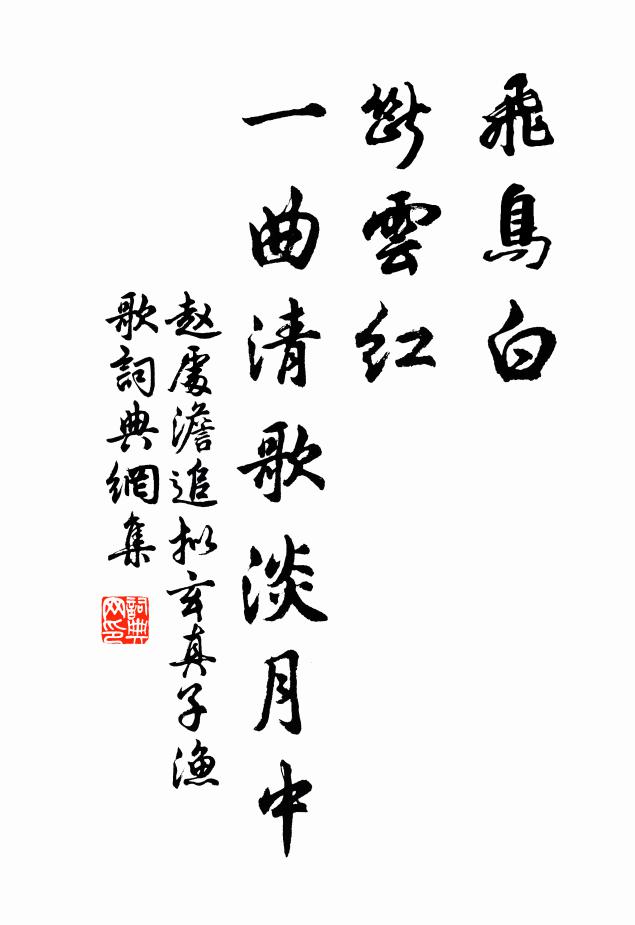 飛鳥白
斷雲紅
一曲清歌淡月中
赵處澹追拟玄真子漁
歌詞典網集
詞典
网印